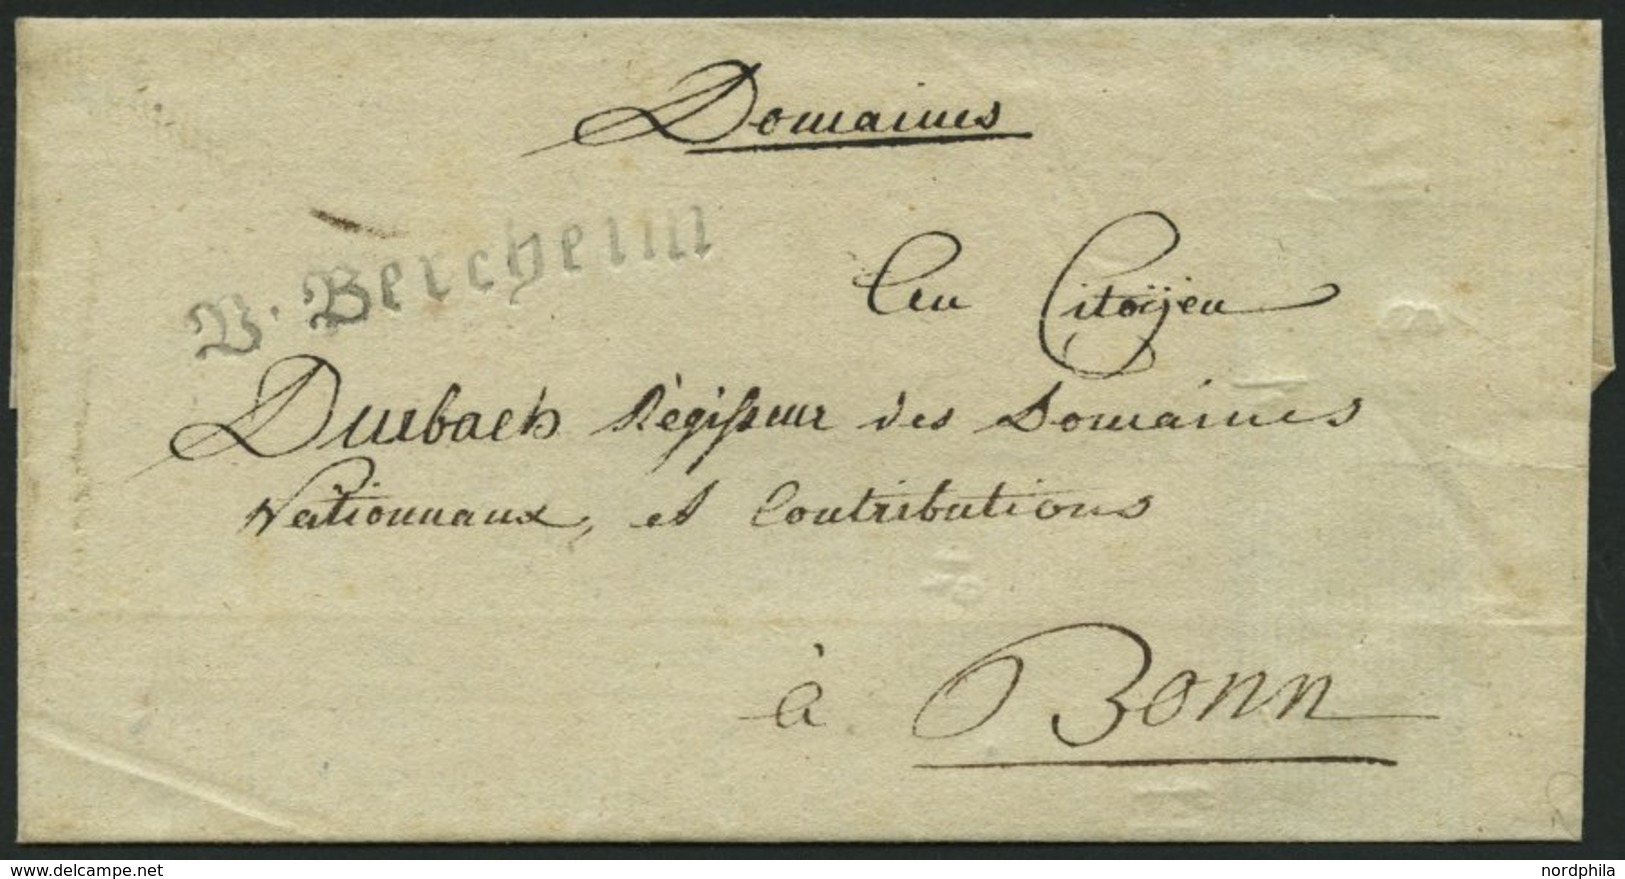 Domaines
V. Bercheim
Au Citoÿen
Durbach Régisseur des Domaines
Nationnaux, et Contributions
à Bonn
www.delcampe.net
nordphila